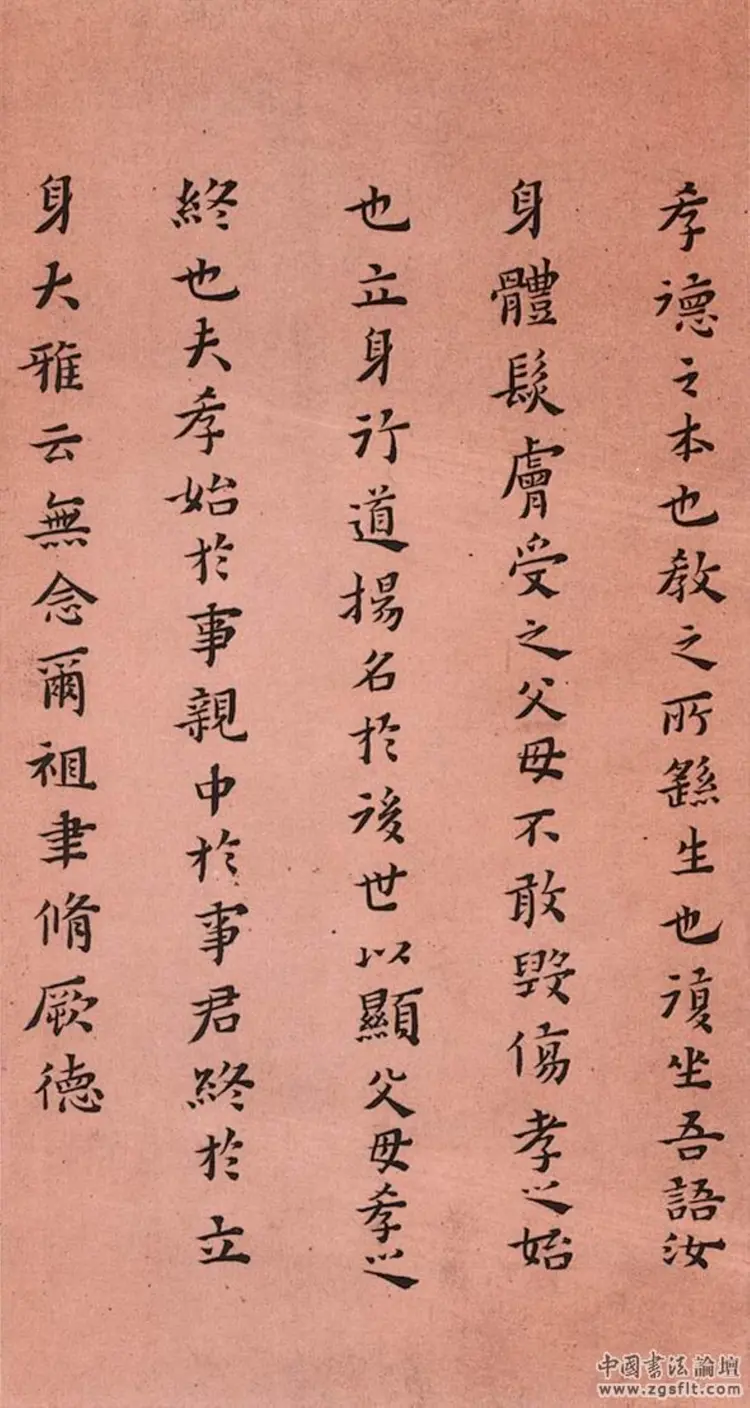 孝德之本也教之所繇生也復坐吾語汝
身體髮膚受之父母不敢毀傷孝之始
也立身行道揚名於後世以顯父母孝之
終也夫孝始於事親中於事君終於立
身大雅云無念爾祖聿脩厥德
中國書法論壇
www.zgsflt.com